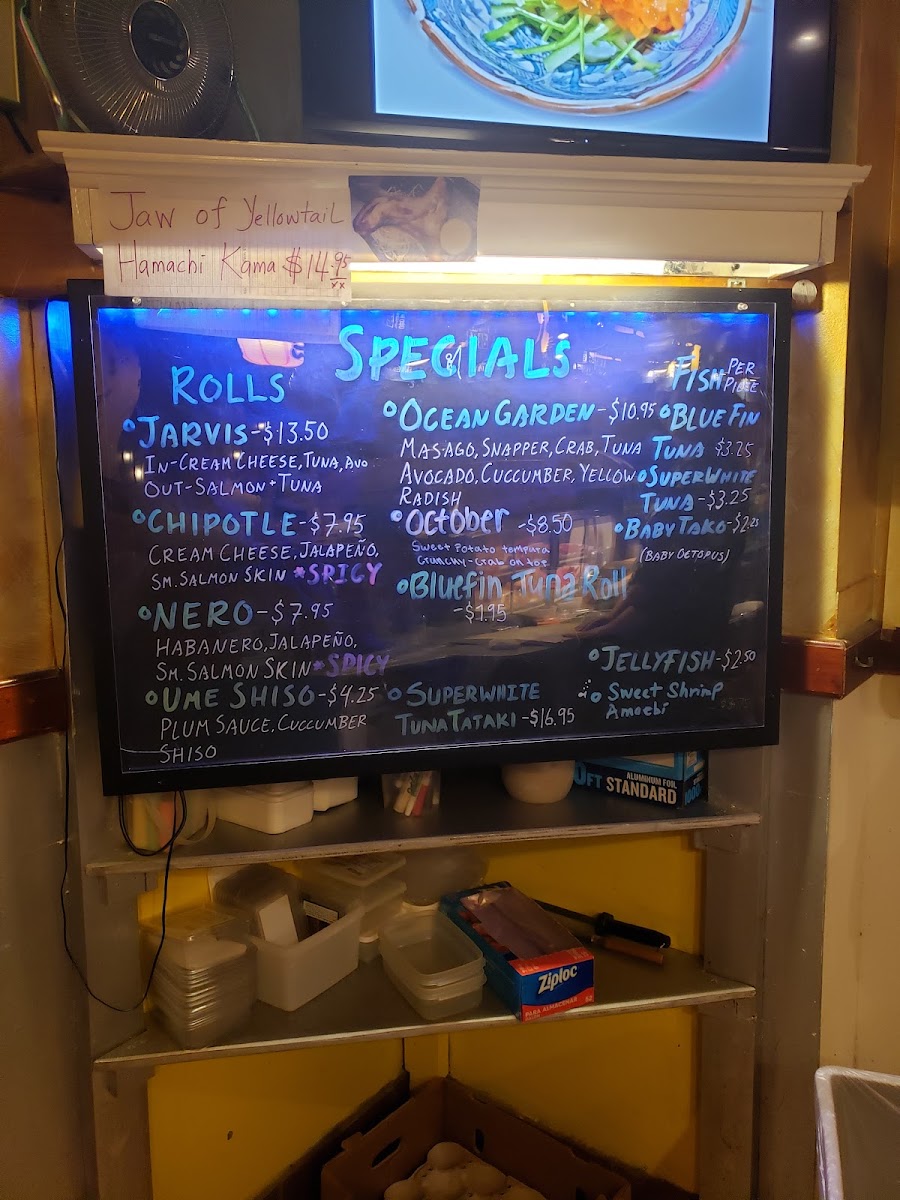 Jaw of Yellowtail
Hamachi Kama $14.95
SPECIALS
ROLLS
JARVIS-$13.50
IN-CREAM CHEESE, TUNA, AVO
OUT-SALMON+TUNA
CHIPOTLE-$7.95
CREAM CHEESE, JALAPEÑO,
SM. SALMON SKIN *SPICY
NERO-$7.95
HABANERO, JALAPEÑO,
SM. SALMON SKIN *SPICY
UME SHISO-$4.25
PLUM SAUCE, CUCCUMBER
SHISO
OCEAN GARDEN-$10.95
MASAGO, SNAPPER, CRAB, TUNA
AVOCADO, CUCCUMBER, YELLOW
RADISH
October -$8.50
Sweet Potato tempura
Crunchy-Crab on toe
Bluefin Tuna Roll
SUPERWHITE
TUNA TATAKI-$16.95
FISH PER
PIECE
BLUE FIN
TUNA $3.25
SUPERWHITE
TUNA-$3.25
BABY TAKO-$2.25
(BABY OCTOPUS)
JELLYFISH-$2.50
Sweet Shrimp
Amaebi
FT STANDARD
ALUMINUM FOIL
1000
Ziploc
PARA ALMACENAR
52